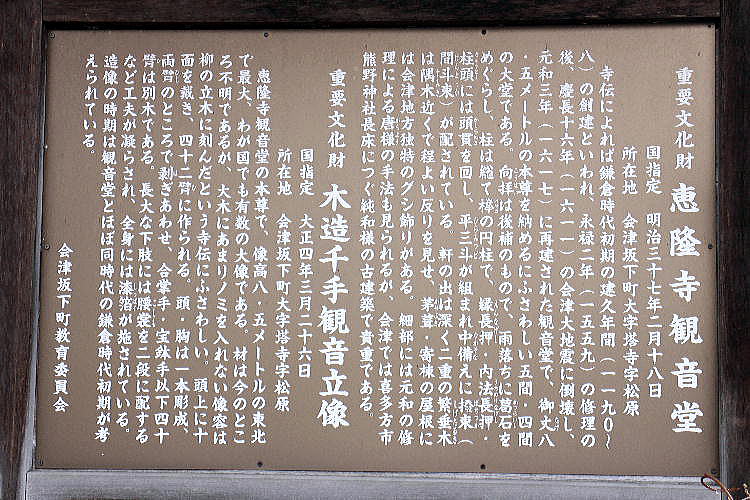 重要文化財 恵隆寺観音堂
国指定 明治三十七年二月十八日
所在地 会津坂下町大字塔寺字松原
寺伝によれば鎌倉時代初期の建久年間(一一九〇〜
八)の創建といわれ、永禄二年(一五五九)の修理の
後、慶長十六年(一六一一)の会津大地震に倒壊し、
元和三年(一六一七)に再建された観音堂で、御丈八
・五メートルの本尊を納めるにふさわしい五間・四間
の大堂である。向拝は後補のもので、雨落ちに葛石を
めぐらし、柱は総て欅の円柱で、縁長押・内法長押・
柱頭には頭貫を回し、平三斗が組まれ中備えに撥束(
間斗束)が配されている。軒の出は深く二重の繁垂木
は隅木近くで程よい反りを見せ、茅葺・寄棟の屋根に
は会津地方独特のグシ飾りがある。細部には元和の修
理による唐様の手法も見られるが、会津では喜多方市
熊野神社長床につぐ純和様の古建築で貴重である。
重要文化財 木造千手観音立像
国指定 大正四年三月二十六日
所在地 会津坂下町大字塔寺字松原
恵隆寺観音堂の本尊で、像高八・五メートルの東北
で最大、わが国でも有数の大像である。材は今のとこ
ろ不明であるが、大木にあまりノミを入れない像容は
柳の立木に刻んだという寺伝にふさわしい。頭上に十
面を戴き、四十二臂に作られる。頭・胸は一本彫成、
両臂のところで剥ぎあわせ、合掌手・宝鉢手以下四十
臂は別木である。長大な下肢には腰裳を二段に配する
など工夫が凝らされ、全身には漆箔が施されている。
造像の時期は観音堂とほぼ同時代の鎌倉時代初期が考
えられている。
会津坂下町教育委員会